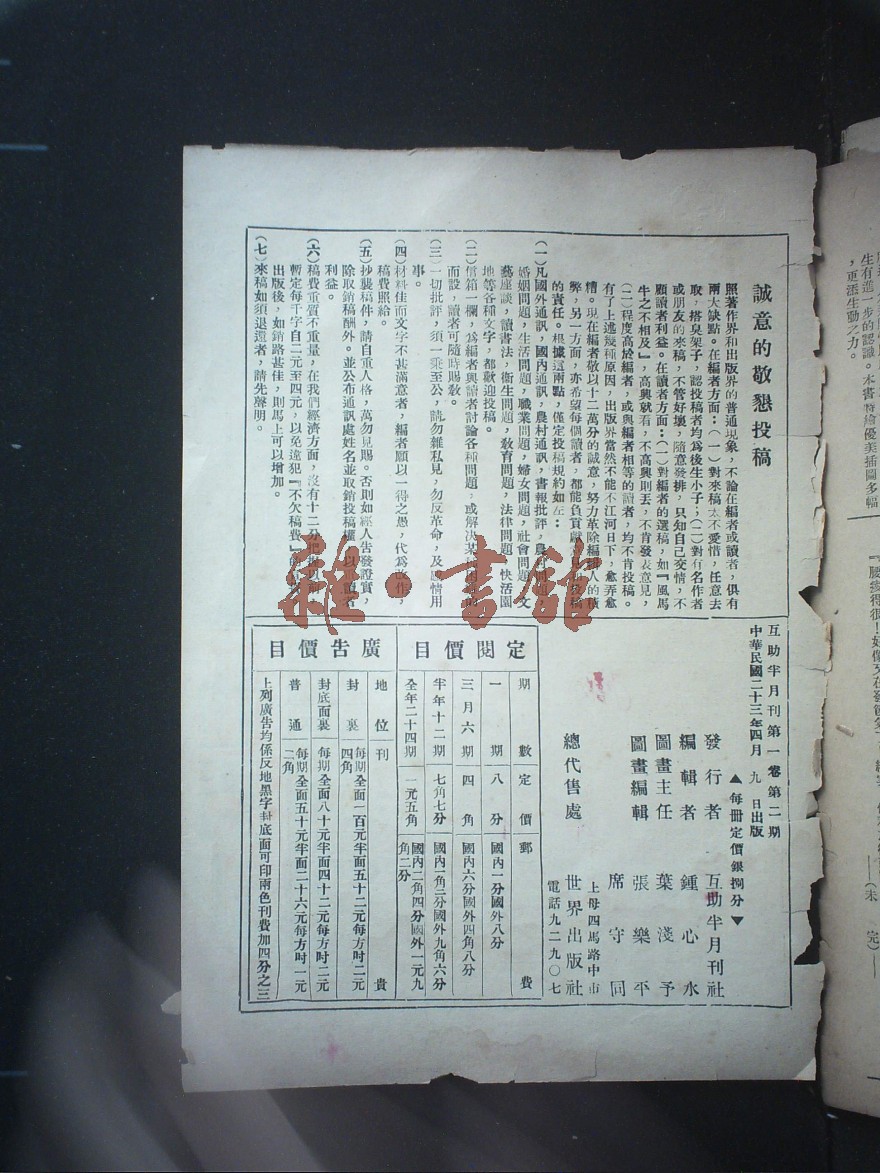 誠意的敬懇投稿
照著作界和出版界的普通現象，不論在編者或讀者，俱有
兩大缺點。在編者方面：(一)對來稿太不愛惜，任意去
取，搭臭架子，認投稿者均為後生小子；(二)對有名作者
或朋友的來稿，不管好壞，隨意發排，只知自己交情，不
顧讀者利益。在讀者方面：(一)對編者的選稿，如『風馬
牛之不相及』，高興就看，不高興則丟，不肯發表意見，
(二)程度高於編者，或與編者相等的讀者，均不肯投稿。
有了上述幾種原因，出版界當然不能不江河日下，愈弄愈
糟。現在編者敬以十二萬分的誠意，努力革除編輯人的積
弊，另一方面，亦希望每個讀者，都能負貢獻
的責任。根據這兩點，僅定投稿規約如左：
(一)凡國外通訊，國內通訊，農村通訊，書報批評，農村問題，
婚姻問題，生活問題，職業問題，婦女問題，社會問題，文
藝座談，讀書法，衛生問題，教育問題，法律問題，快活園
地等各種文字，都歡迎投稿。
(二)信箱一欄，為編者與讀者討論各種問題，或解決某
而設，讀者可隨時賜敎。
(三)一切批評，須一秉至公，請勿雜私見，勿反革命，及感情用
事。
(四)材料佳而文字不甚滿意者，編者願以一得之愚，代為改作，
稿費照給。
(五)抄襲稿件，請自重人格，萬勿見賜。否則如經人告發證實，
除取銷稿酬外。並公布通訊處姓名並取銷投稿權，以
利益。
(六)稿費重質不重量，在我們經濟方面，沒有十二分把握以前，
暫定每千字自二元至四元，以免違犯『不欠稿費』的
出版後，如銷路甚佳，則馬上可以增加。
(七)來稿如須退還者，請先聲明。
互助半月刊第一卷第二期
中華民國二十三年四月九日出版
▲每冊定價銀捌分▼
發行者　互助半月刊社
編輯者　鍾心水
圖畫主任　葉淺予
圖畫編輯　張樂平
席守同
上海四馬路中市
總代售處　世界出版社
電話九二九〇七
定閱價目
期數　定價　郵費
一期　八分　國內一分國外八分
三月六期　四角　國內六分國外四角八分
半年十二期　七角七分　國內一角二分國外九角六分
全年二十四期　一元五角　國內二角四分國外一元九角二分
廣告價目
地位　刊費
封裏　每期全面一百元半面五十二元每方吋二元四角
封底面裏　每期全面八十元半面四十二元每方吋二元
普通　每期全面五十元半面二十六元每方吋一元二角
上列廣告均係反地黑字封底面可印兩色刊費加四分之三
雜·書館
生有進一步的認識。本書特繪優美插圖多幅
，更添生動之力。